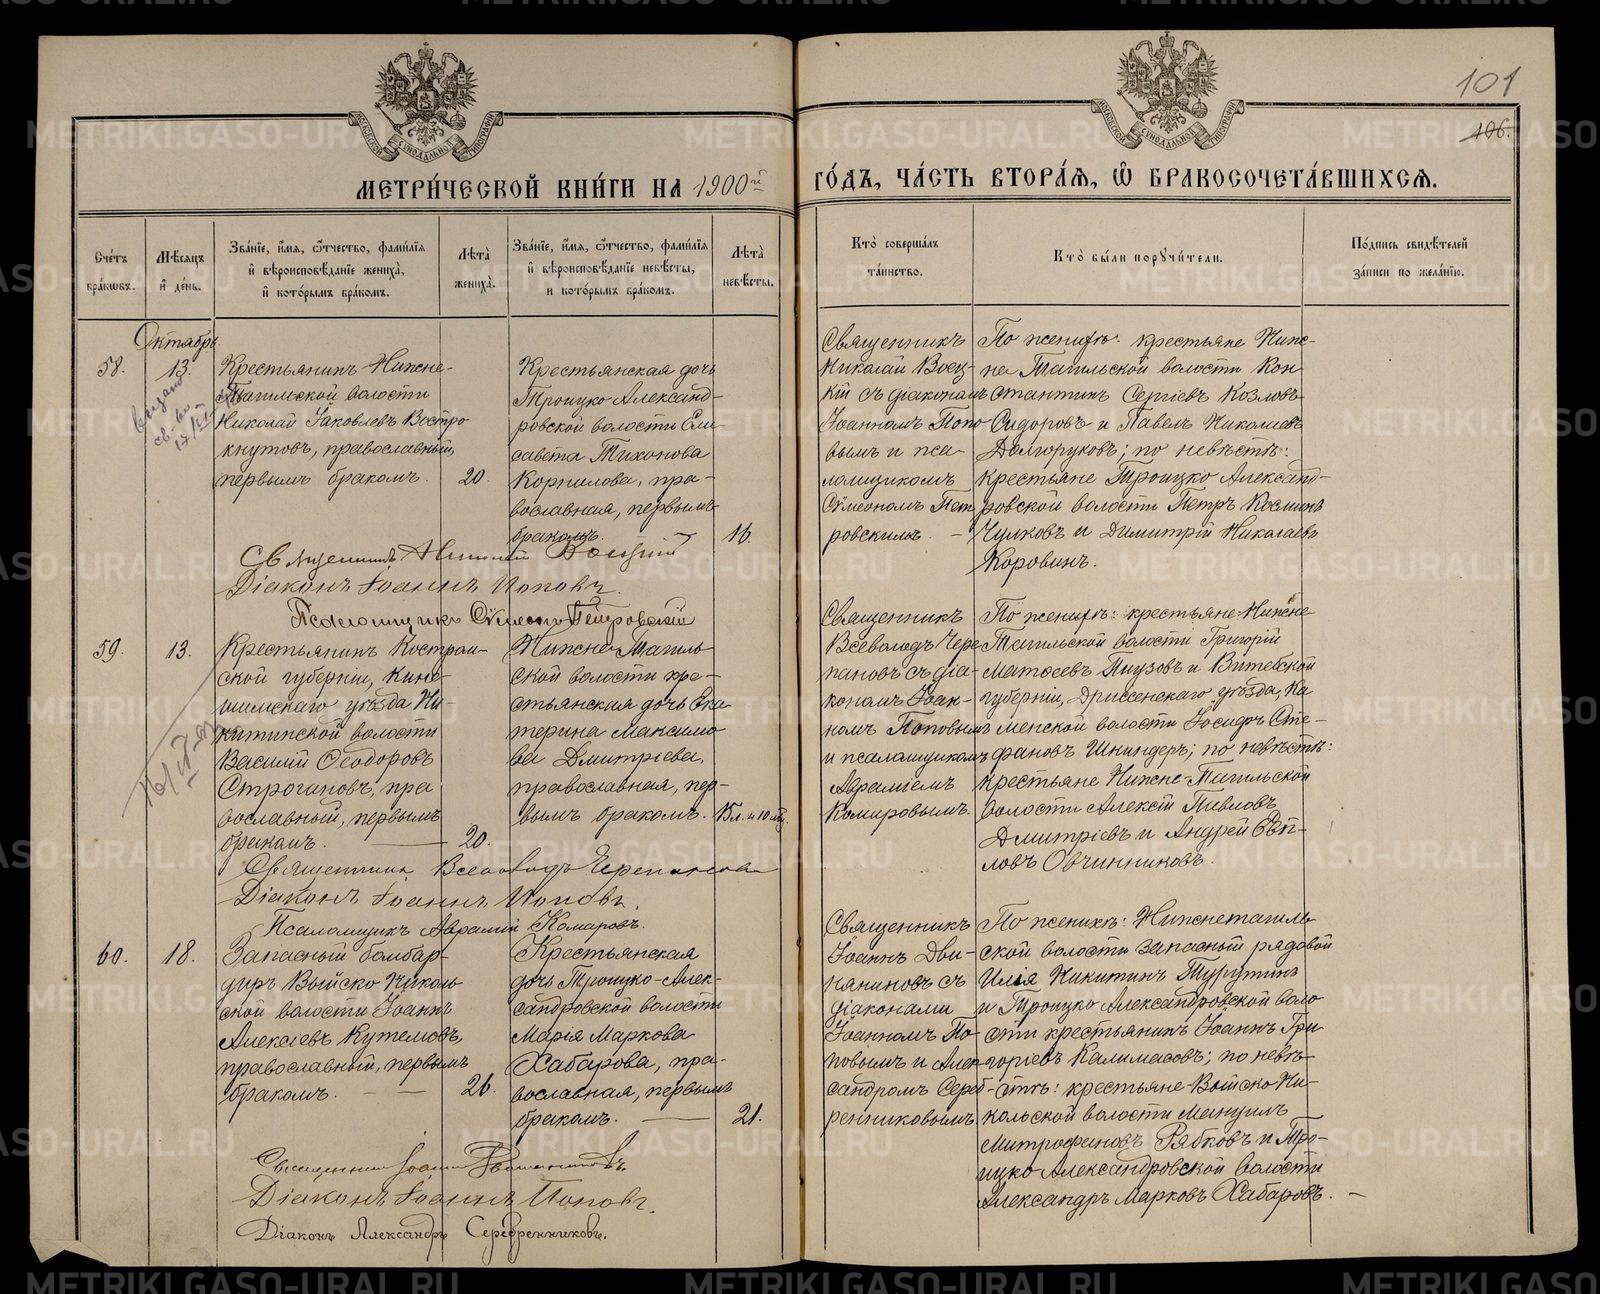 101
106.
МЕТРИ́ЧЕСКОЙ КНИ́ГИ НА 1900й ГО́ДЪ, ЧА́СТЬ ВТОРА́Я, Ѽ БРАКОСОЧЕТА́ВШИХСЯ.
Сче́тъ бра́кѡвъ.
Мѣ́сяцъ и҆ де́нь.
Зва́нїе, и҆́мя, ѻ҆́тчество, фами́лїя и҆ вѣроисповѣ́данїе жениха̀, и҆ кото́рымъ бра́комъ.
Лѣ́та жениха̀.
Зва́нїе, и҆́мя, ѻ҆́тчество, фами́лїя и҆ вѣроисповѣ́данїе невѣ́сты, и кото́рымъ бра́комъ.
Лѣ́та невѣ́сты.
Кто̀ соверша́лъ та́инство.
Кто̀ бы́ли поручи́тели.
По́дпись свидѣ́телей за́писи по жела́нїю.
Октябрь
58.
13.
выдано
св-во
Крестьянинъ Нижне-
Тагильской волости
Николай Яковлевъ Востро
кнутовъ, православный,
первымъ бракомъ.
20.
Крестьянская дочь
Троицко Александ-
ровской волости Ели-
савета Тихонова
Корнилова, пра-
вославная, первымъ
бракомъ.
16.
Священникъ
Николай Воец-
кій съ діакономъ
Іоанномъ Попо
вымъ и пса-
ломщикомъ
Сѵмеономъ Пет
ровскимъ. —
По женихѣ: крестьяне Ниж-
не Тагильской волости Кон
стантинъ Сергіевъ Козловъ
Сидоровъ и Павелъ Николаевъ
Долгоруковъ; по невѣстѣ:
крестьяне Троицко Александ-
ровской волости Петръ Косминъ
Чулковъ и Димитрій Николаевъ
Коровинъ.
Священникъ Николай Воецкій
Діаконъ Іоаннъ Поповъ.
Псаломщикъ Сѵмеонъ Петровскій
59.
13.
Крестьянинъ Костром-
ской губерніи, Кине-
шемскаго уѣзда Ни-
китинской волости
Василій Ѳеодоровъ
Строгановъ, пра
вославный, первымъ
бракомъ. —
20.
Нижне-Тагиль
ской волости кре-
стьянская дочь Ека
терина Максимо
ва Дмитріева,
православная, пер-
вымъ бракомъ.
15 л. и 10 мц.
Священникъ
Всеволодъ Чере
пановъ съ діа-
кономъ Іоан-
номъ Поповымъ
и псаломщикомъ
Авраміемъ
Комаровымъ.
По женихѣ: крестьяне Нижне
Тагильской волости Григорій
Матѳеевъ Пузовъ и Витебской
губерніи, Дриссенскаго уѣзда, Ка
менской волости Іосифъ Сте-
фановъ Шкиндеръ; по невѣстѣ:
крестьяне Нижне-Тагильской
волости Алексій Павловъ
Дмитріевъ и Андрей Евп-
ловъ Овчинниковъ.
Священникъ Всеволодъ Черепановъ
Діаконъ Іоаннъ Поповъ.
Псаломщикъ Аврамій Комаровъ.
60.
18.
Запасный бомбар-
диръ Выйско Николь
ской волости Іоаннъ
Алексіевъ Кутемовъ,
православный, первымъ
бракомъ. — —
26.
Крестьянская
дочь Троицко-Алек-
сандровской волости
Марія Маркова
Хабарова, пра-
вославная, первымъ
бракомъ. —
21.
Священникъ
Іоаннъ Дви-
няниновъ съ
діаконами
Іоанномъ По-
повымъ и Алек
сандромъ Сереб-
ренниковымъ.
По женихѣ: Нижнетагиль
ской волости запасный рядовой
Илія Никитинъ Турутинъ
и Троицко Александровской воло
сти крестьянинъ Іоаннъ Гри
горіевъ Калмасовъ; по невѣ-
стѣ: крестьяне Выйско Ни-
кольской волости Мануилъ
Митрофановъ Рябковъ и Тро-
ицко Александровской волости
Александръ Марковъ Хабаровъ. —
Священникъ Іоаннъ Двиняниновъ.
Діаконъ Іоаннъ Поповъ.
Діаконъ Александръ Серебренниковъ.
METRIKI.GASO-URAL.RU